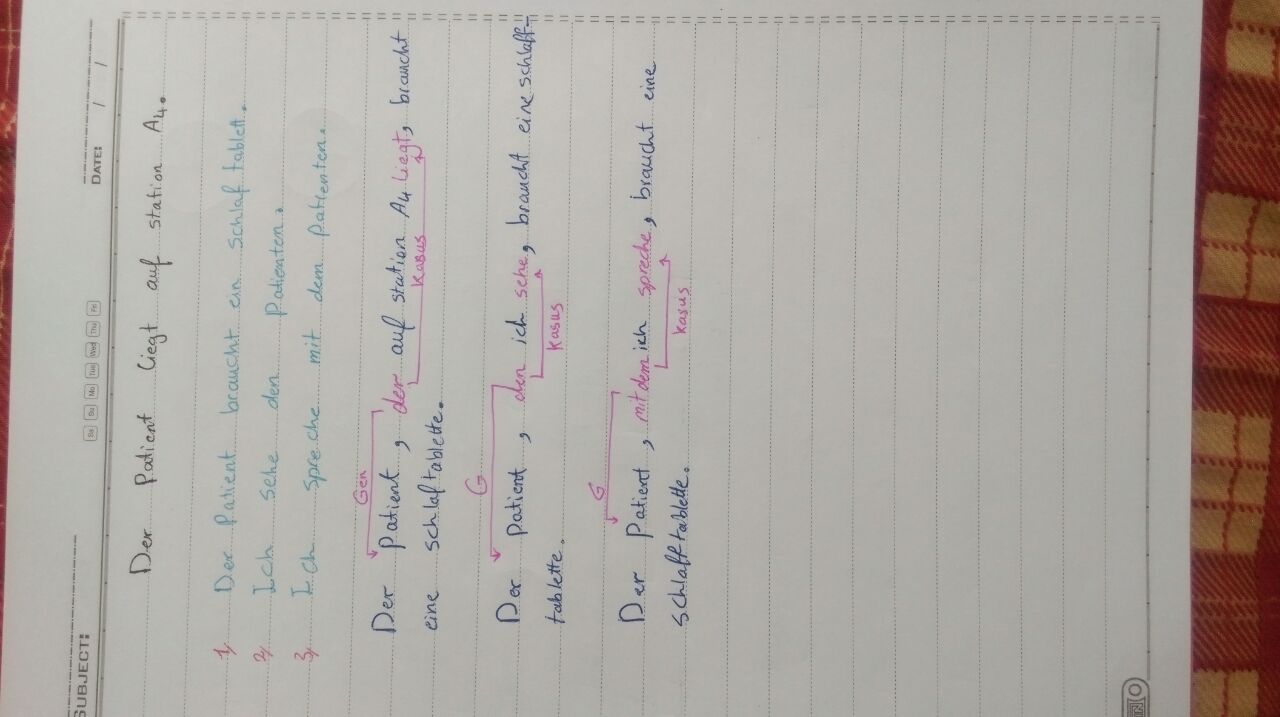 SUBJECT:
Sa Su Mo Tue Wed Thu Fri
DATE: / /
Der Patient liegt auf station A4.
1, Der Patient braucht ein schlaf tablett.
2, Ich sehe den Patienten.
3, Ich spreche mit dem patienten.
Gen
Der Patient, der auf station A4 liegt, braucht
Kasus
eine schlaftablette.
G
Der patient, den ich sehe, braucht eine schlaff-
Kasus
tablette.
G
Der Patient, mit dem ich spreche, braucht eine
Kasus
schlafftablette.